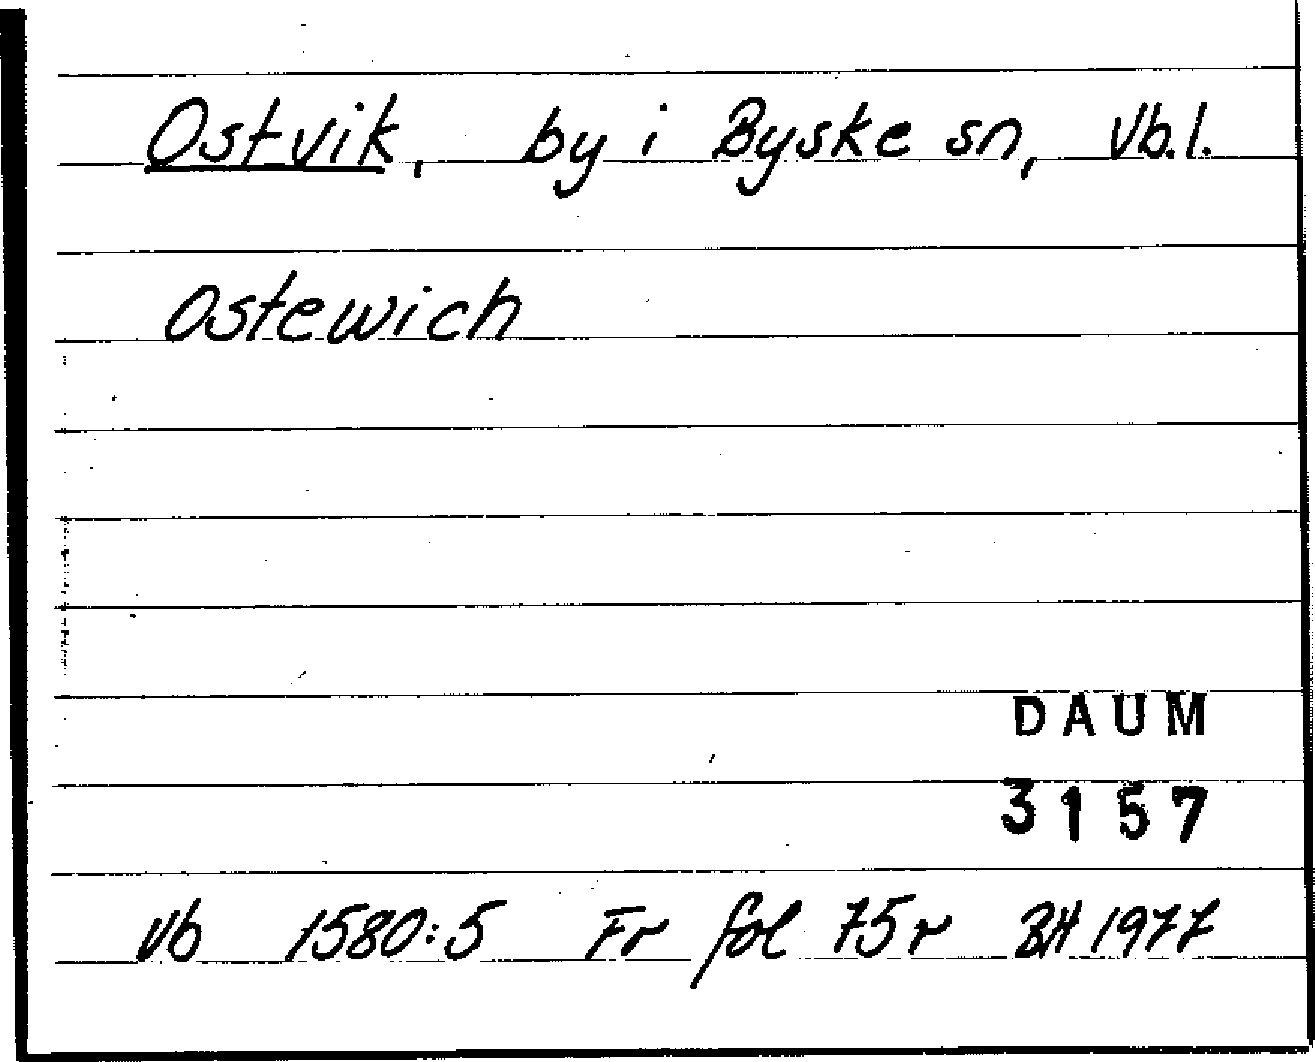 Ostvik, by i Byske sn, Vb.l.
Ostewich
DAUM
3157
Vb 1580:5 Fr fol 75r BH 1977